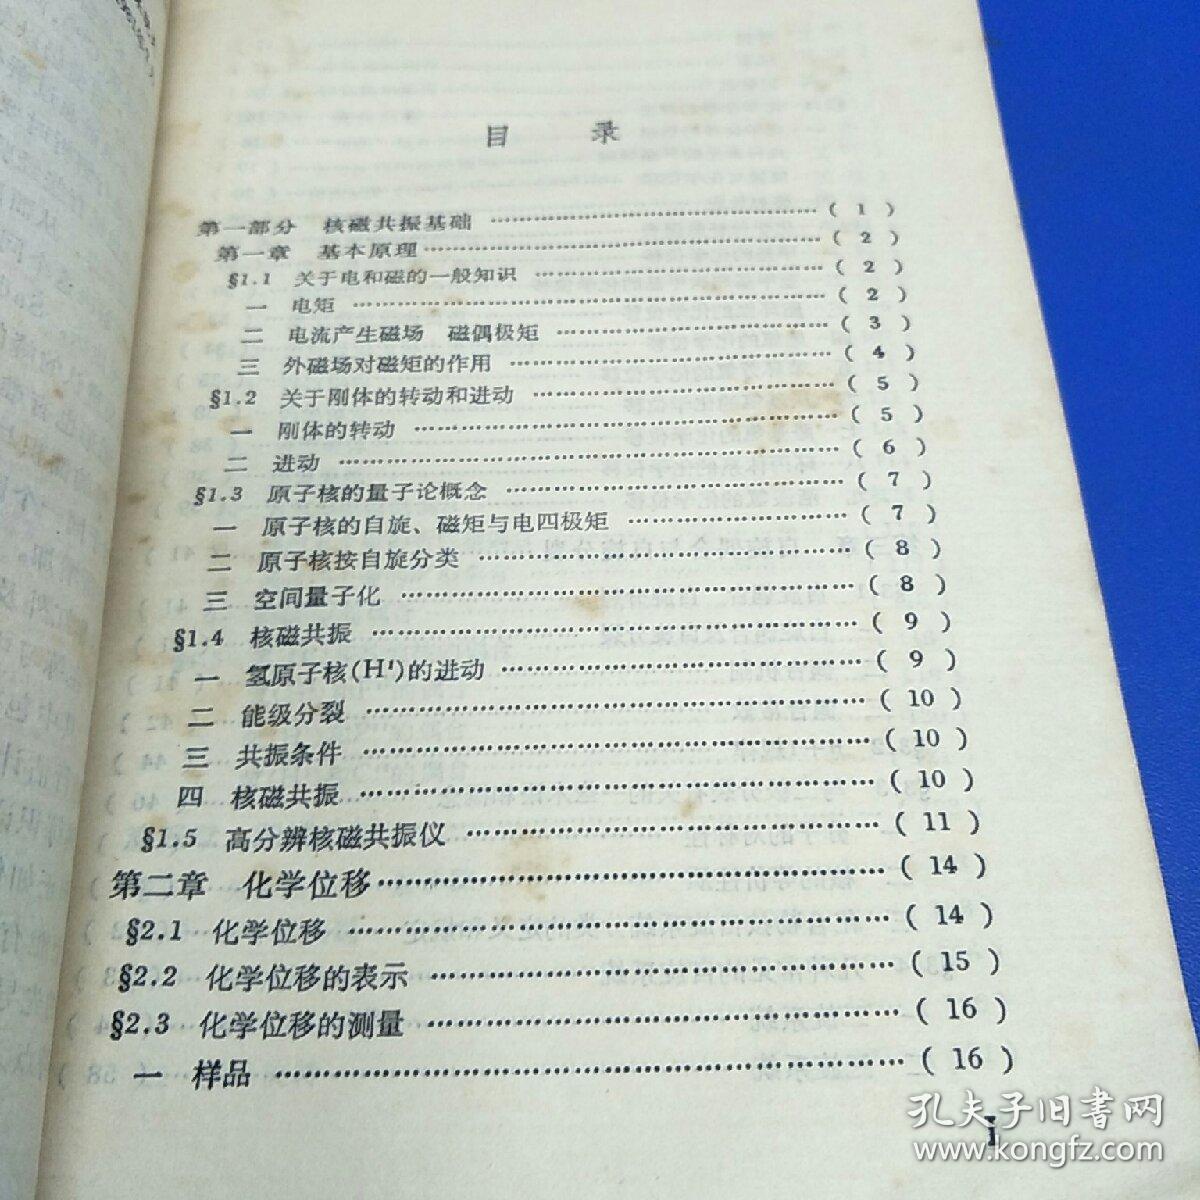 目 录
第一部分 核磁共振基础 ……………………………………( 1 )
第一章 基本原理 ……………………………………( 2 )
§1.1 关于电和磁的一般知识 ……………………………………( 2 )
一 电矩 ……………………………………( 2 )
二 电流产生磁场 磁偶极矩 ……………………………………( 3 )
三 外磁场对磁矩的作用 ……………………………………( 4 )
§1.2 关于刚体的转动和进动 ……………………………………( 5 )
一 刚体的转动 ……………………………………( 5 )
二 进动 ……………………………………( 6 )
§1.3 原子核的量子论概念 ……………………………………( 7 )
一 原子核的自旋、磁矩与电四极矩 ……………………………………( 7 )
二 原子核按自旋分类 ……………………………………( 8 )
三 空间量子化 ……………………………………( 8 )
§1.4 核磁共振 ……………………………………( 9 )
一 氢原子核(H¹)的进动 ……………………………………( 9 )
二 能级分裂 ……………………………………( 10 )
三 共振条件 ……………………………………( 10 )
四 核磁共振 ……………………………………( 10 )
§1.5 高分辨核磁共振仪 ……………………………………( 11 )
第二章 化学位移 ……………………………………( 14 )
§2.1 化学位移 ……………………………………( 14 )
§2.2 化学位移的表示 ……………………………………( 15 )
§2.3 化学位移的测量 ……………………………………( 16 )
一 样品 ……………………………………( 16 )
1
孔夫子旧书网
www.kongfz.com